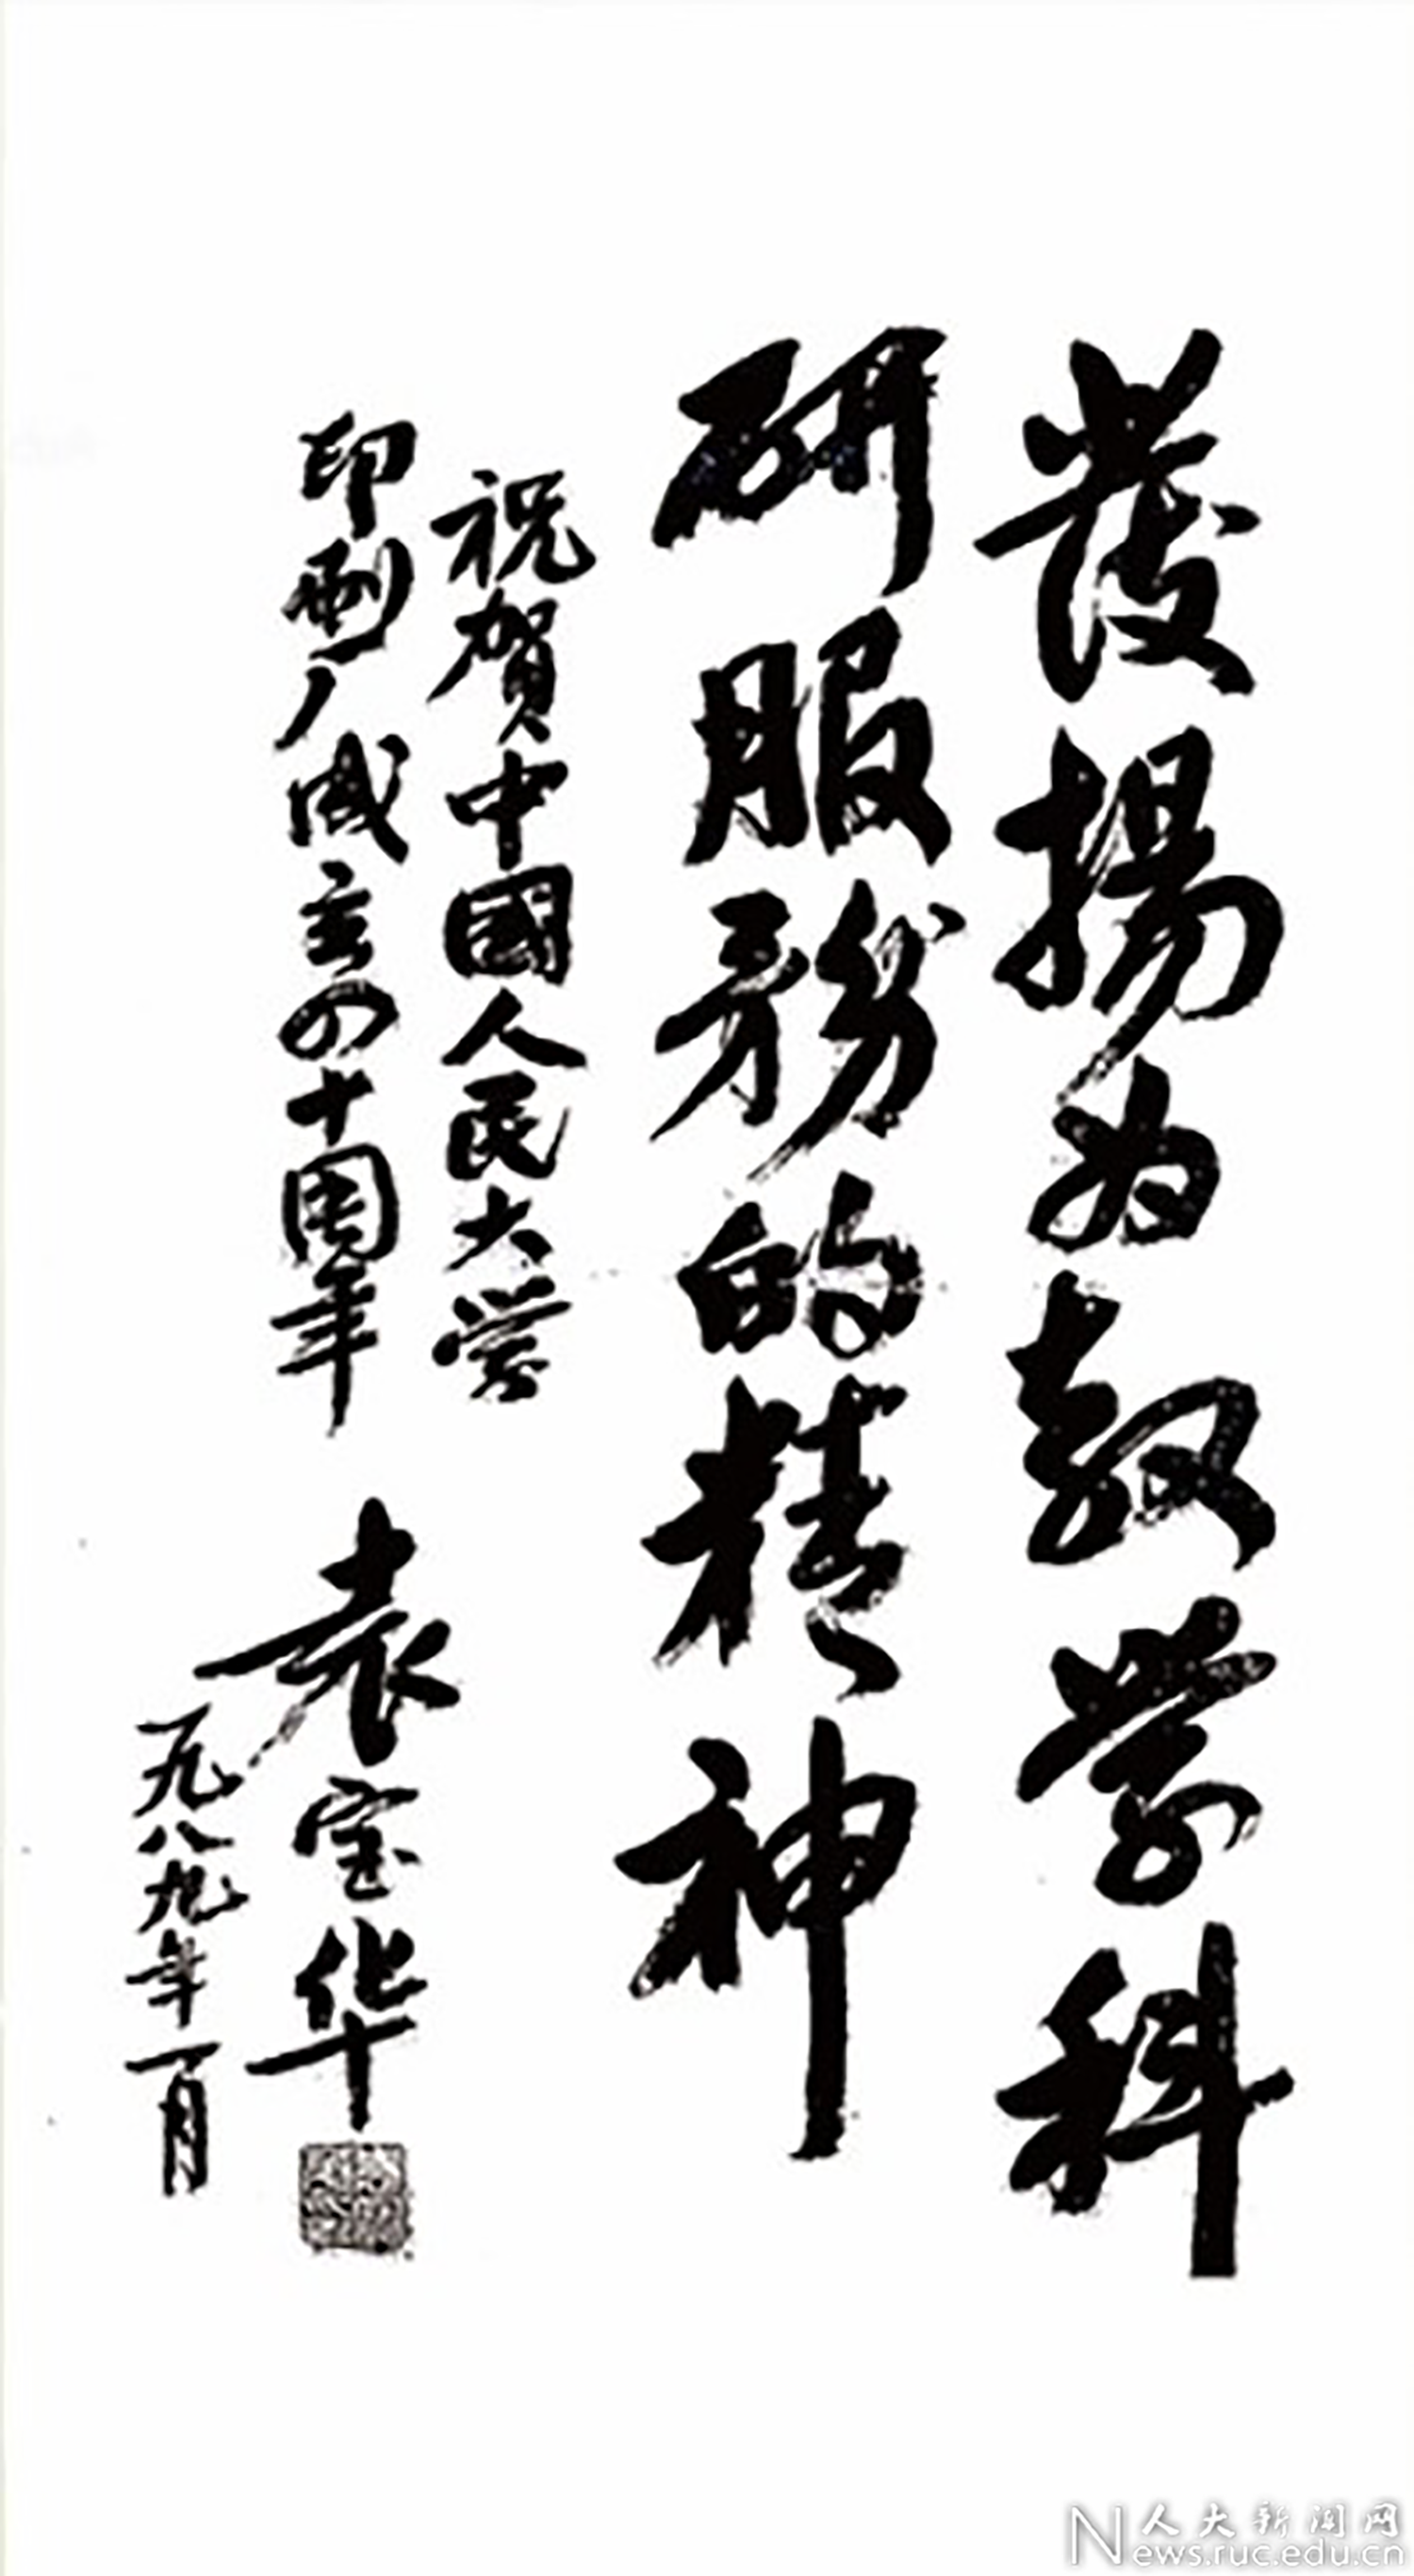 發揚为教学科
研服務的精神
祝賀中國人民大学
印刷厂成立四十周年
袁宝华
一九八九年一月
人大新闻网
News.ruc.edu.cn